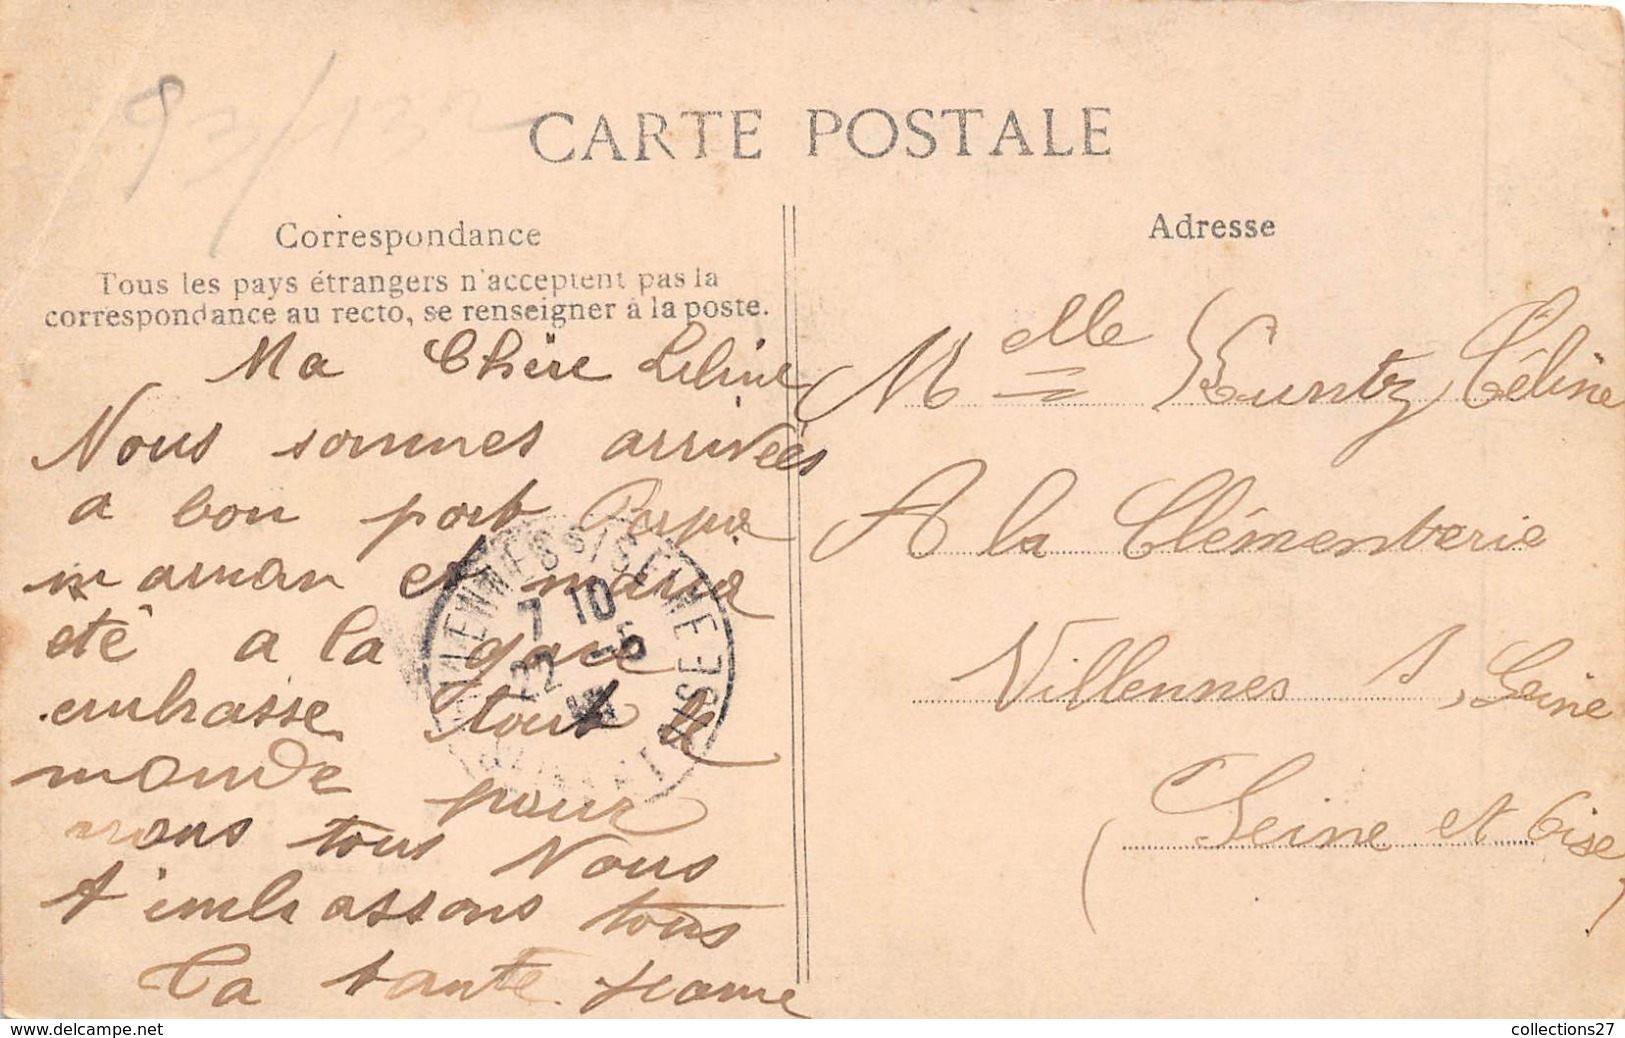 93/132
CARTE POSTALE
Correspondance
Tous les pays étrangers n'acceptent pas la
correspondance au recto, se renseigner à la poste.
Ma Chère Liline
Nous sommes arrivées
a bon port Papa
maman et maria
etê a la gare
embrasse tout le
monde pour
nous tous Nous
t'embrassons tous
Ta tante Jeanne
Adresse
Melle Kuntz Céline
A la Clémenterie
Villennes s, Seine
(Seine et Oise)
VILLENNES S/SEINE
7 10
22 -5
www.delcampe.net
collections27